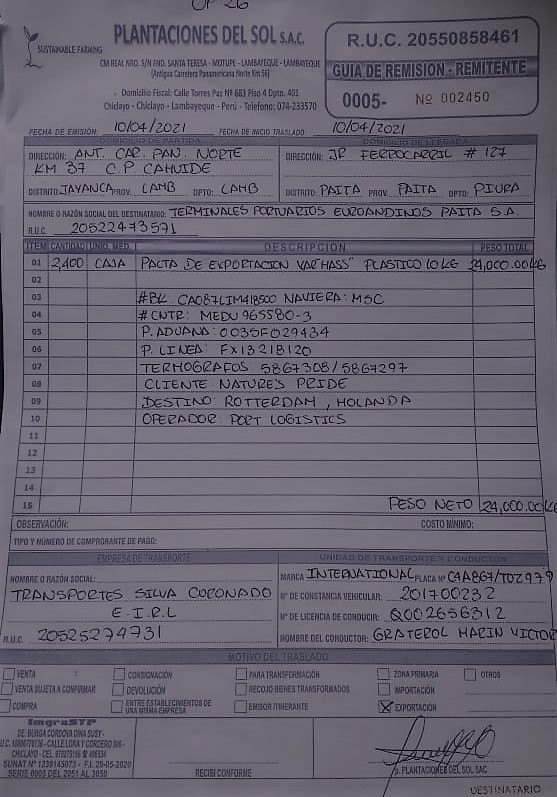 OP 26
SUSTAINABLE FARMING
PLANTACIONES DEL SOL S.A.C.
CM REAL NRO. S/N FND. SANTA TERESA - MOTUPE - LAMBAYEQUE - LAMBAYEQUE
(Antigua Carretera Panamericana Norte Km 56)
Domicilio Fiscal: Calle Torres Paz Nº 683 Piso 4 Dpto. 401
Chiclayo - Chiclayo - Lambayeque - Perú - Telefono: 074-233570
R.U.C. 20550858461
GUIA DE REMISION - REMITENTE
0005- Nº 002450
FECHA DE EMISIÓN: 10/04/2021 FECHA DE INICIO TRASLADO: 10/04/2021
DOMICILIO DE PARTIDA DOMICILIO DE LLEGADA
DIRECCIÓN: ANT. CAR. PAN. NORTE DIRECCIÓN: JR FERROCARRIL # 127
KM 37 C.P CAHUIDE
DISTRITO: JAYANCA PROV. LAMB DPTO: LAMB DISTRITO: PAITA PROV. PAITA DPTO: PIURA
NOMBRE O RAZÓN SOCIAL DEL DESTINATARIO: TERMINALES PORTUARIOS EUROANDINOS PAITA S.A.
R.U.C. 20522473571
ITEM CANTIDAD UNID. MED. DESCRIPCION PESO TOTAL
01 2,400 CAJA PALTA DE EXPORTACION VAR "HASS" PLASTICO 10 KG 24,000.00 KG
02
03 #BK: CA087LIM418500 NAVIERA: MSC
04 #CNTR: MEDU 965580-3
05 P. ADUANA: 0035F029434
06 P. LINEA: FX13218120
07 TERMOGRAFOS 5867308/5867297
08 CLIENTE: NATURE'S PRIDE
09 DESTINO: ROTTERDAM, HOLANDA
10 OPERADOR: PORT LOGISTICS
11
12
13
14
15 PESO NETO 24,000.00 KG
OBSERVACIÓN: COSTO MÍNIMO:
TIPO Y NÚMERO DE COMPROBANTE DE PAGO:
EMPRESA DE TRANSPORTE UNIDAD DE TRANSPORTE Y CONDUCTOR
NOMBRE O RAZÓN SOCIAL: MARCA INTERNATIONAL PLACA Nº C4A867/T0Z979
TRANSPORTES SILVA CORONADO Nº DE CONSTANCIA VEHICULAR: 201700232
E.I.R.L Nº DE LICENCIA DE CONDUCIR: Q002656312
R.U.C. 20525274731 NOMBRE DEL CONDUCTOR: GRATEROL MARIN VICTOR
MOTIVO DEL TRASLADO
VENTA CONSIGNACIÓN PARA TRANSFORMACIÓN ZONA PRIMARIA OTROS
VENTA SUJETA A CONFIRMAR DEVOLUCIÓN RECOJO BIENES TRANSFORMADOS IMPORTACIÓN
COMPRA ENTRE ESTABLECIMIENTOS DE UNA MISMA EMPRESA EMISOR ITINERANTE EXPORTACIÓN
ImgraSYP
DE: BURGA CORDOVA DINA SUSY
CALLE LORA Y CORDERO
SUNAT Nº 1239145073 - F.I. 29-05-2020
SERIE 0005 DEL 2051 AL 3050
RECIBI CONFORME
p. PLANTACIONES DEL SOL SAC
DESTINATARIO